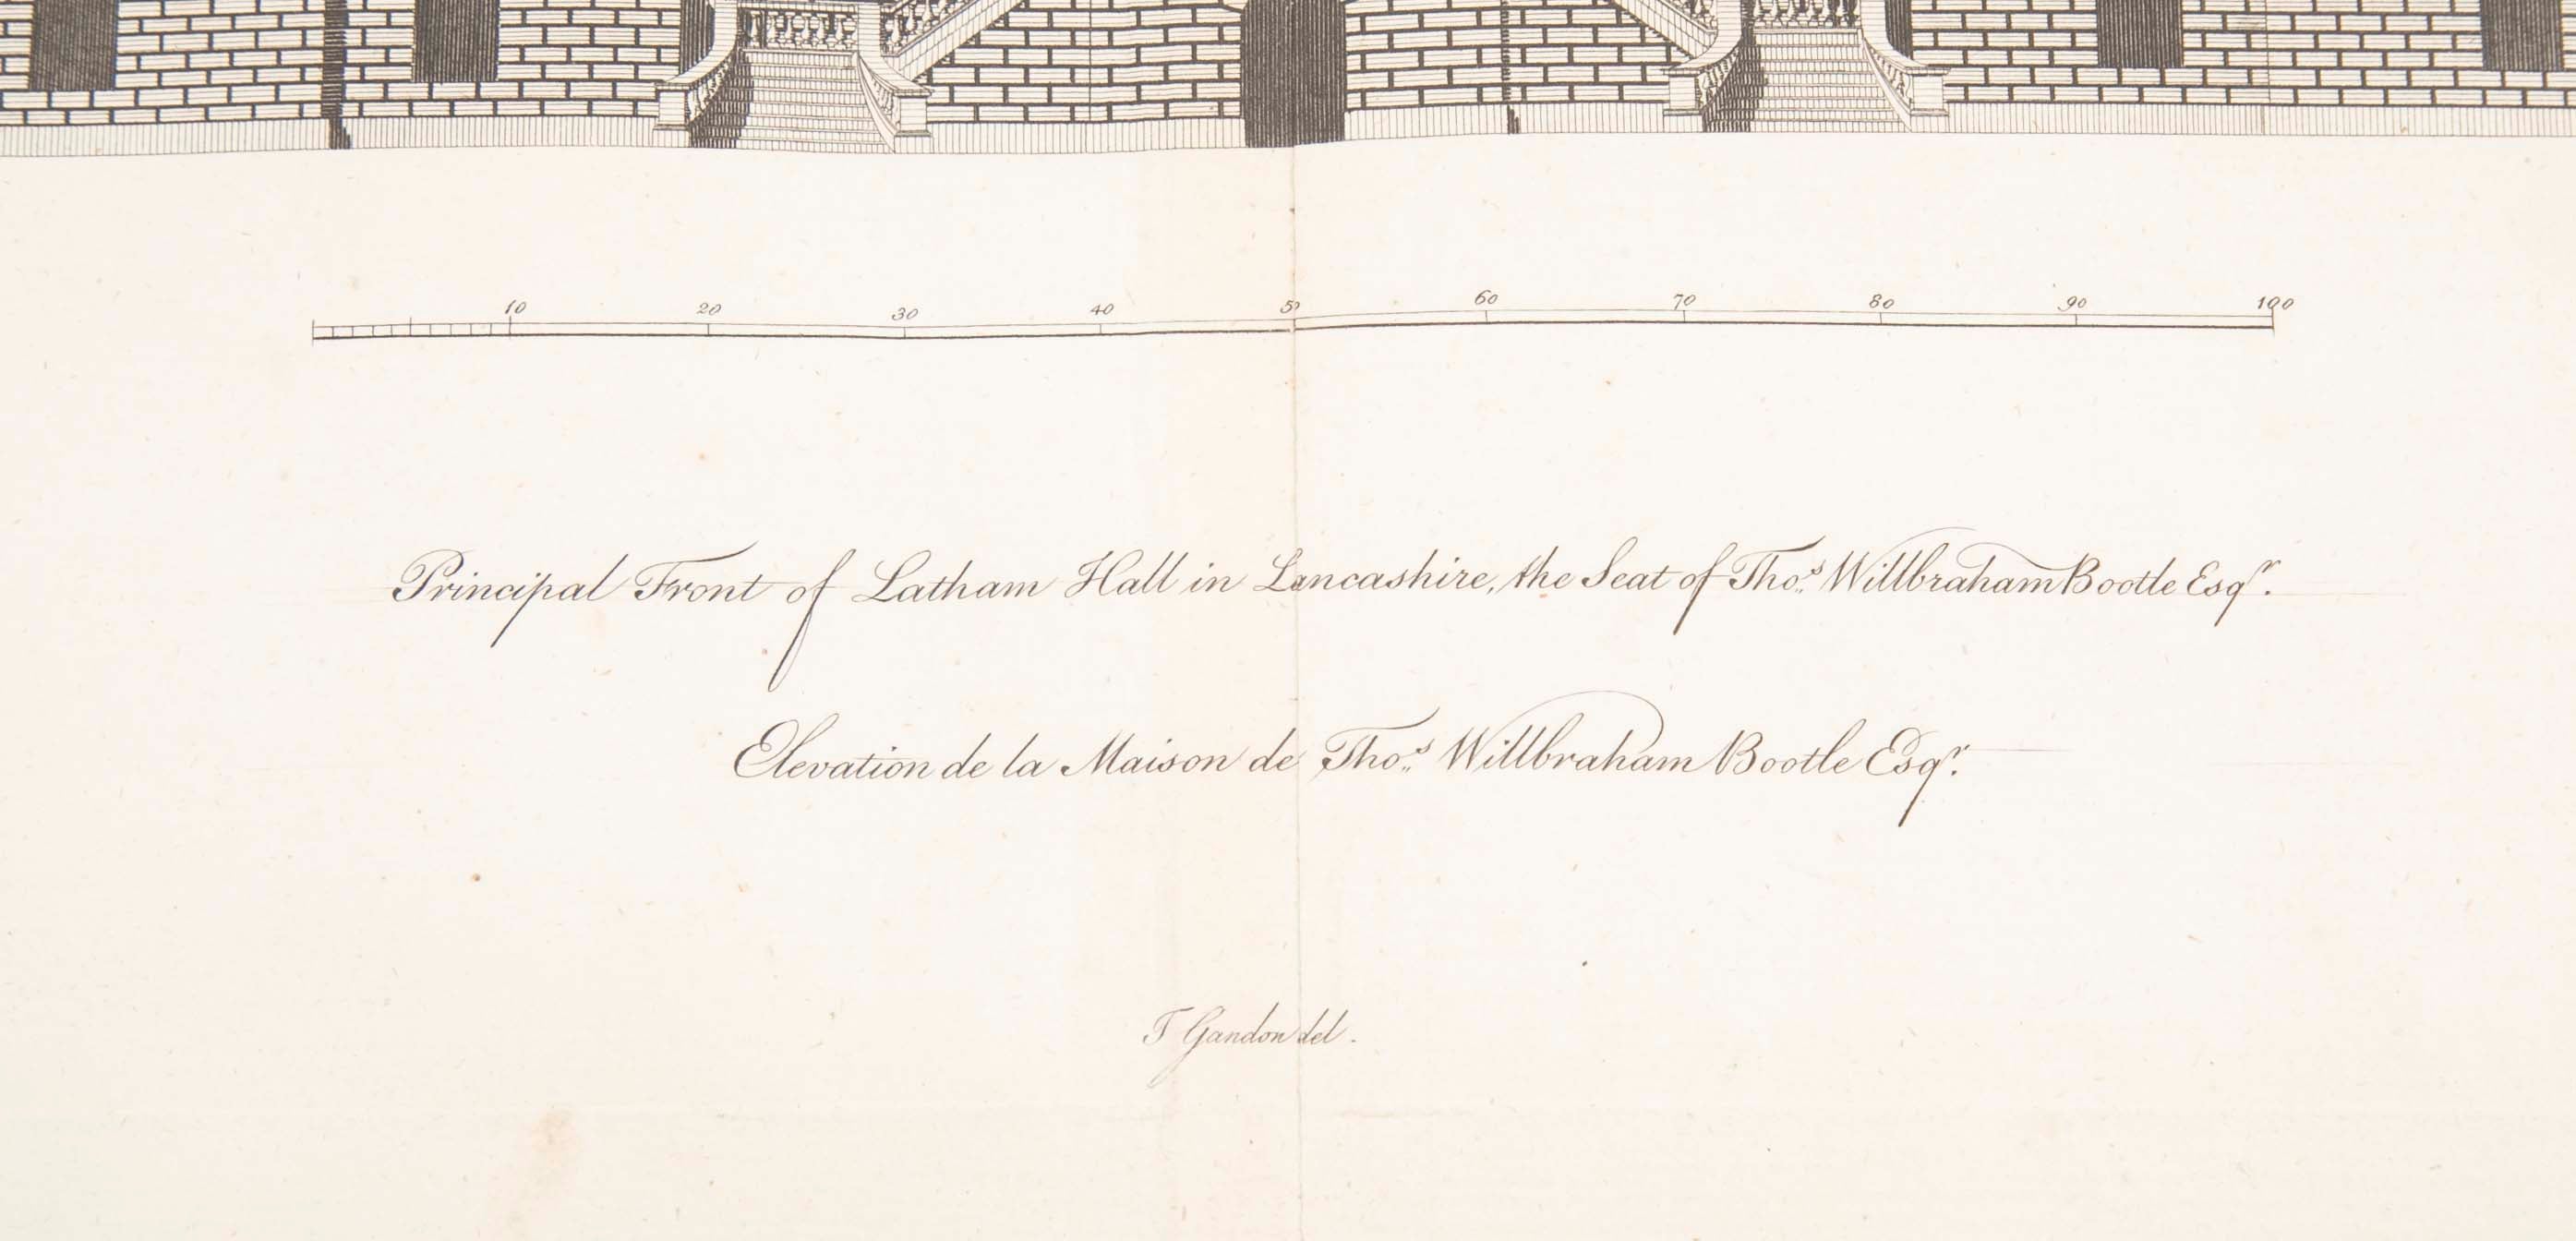 10 20 30 40 50 60 70 80 90 100
Principal Front of Latham Hall in Lancashire, the Seat of Tho.s Willbraham Bootle Esq.r
Elevation de la Maison de Tho.s Willbraham Bootle Esq.r
T Gandon del.